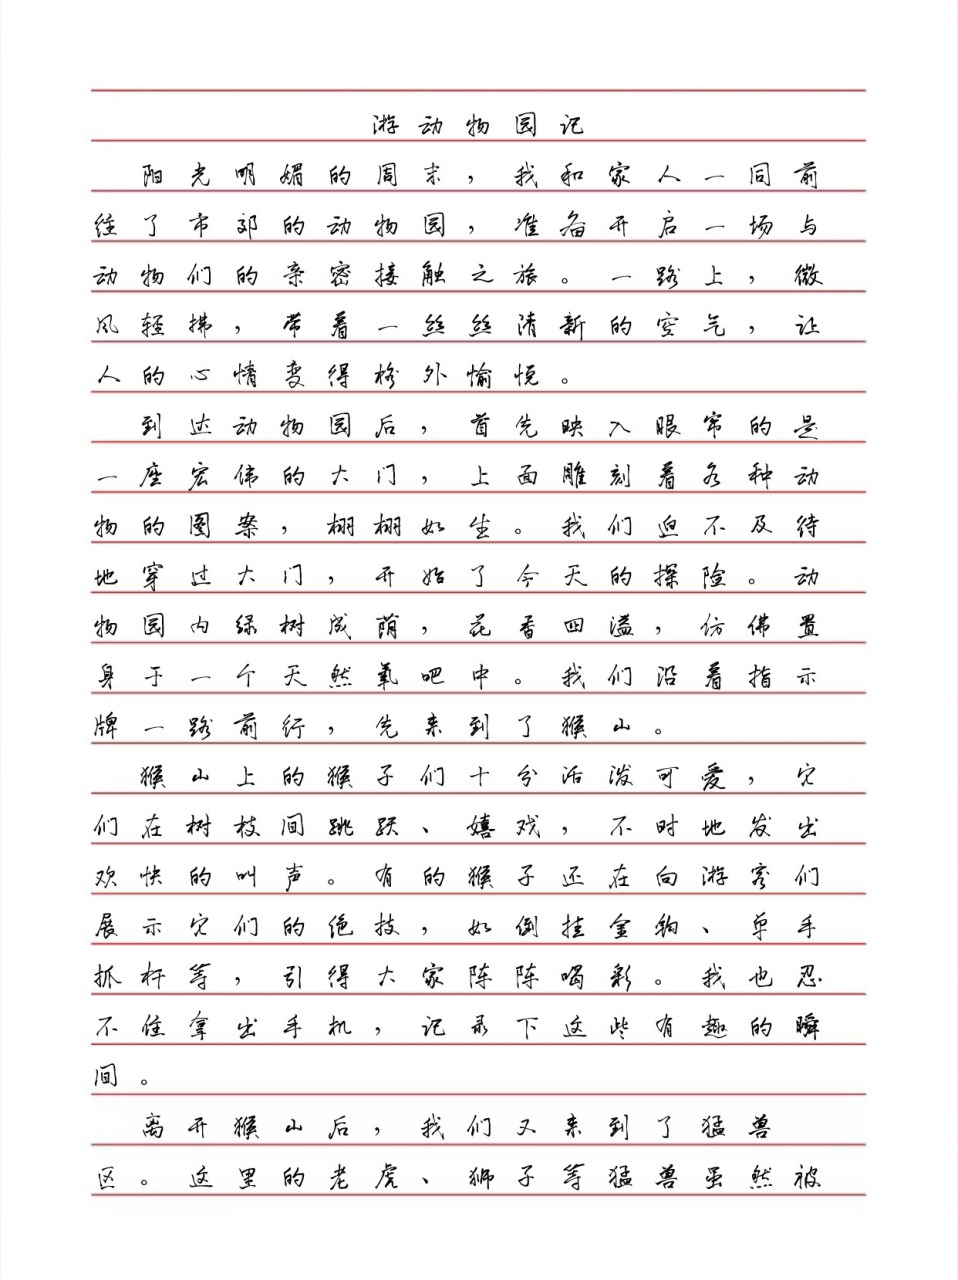 游动物园记
阳光明媚的周末，我和家人一同前
往了市郊的动物园，准备开启一场与
动物们的亲密接触之旅。一路上，微
风轻拂，带着一丝丝清新的空气，让
人的心情变得格外愉悦。
到达动物园后，首先映入眼帘的是
一座宏伟的大门，上面雕刻着各种动
物的图案，栩栩如生。我们迫不及待
地穿过大门，开始了今天的探险。动
物园内绿树成荫，花香四溢，仿佛置
身于一个天然氧吧中。我们沿着指示
牌一路前行，先来到了猴山。
猴山上的猴子们十分活泼可爱，它
们在树枝间跳跃、嬉戏，不时地发出
欢快的叫声。有的猴子还在向游客们
展示它们的绝技，如倒挂金钩、单手
抓杆等，引得大家阵阵喝彩。我也忍
不住拿出手机，记录下这些有趣的瞬
间。
离开猴山后，我们又来到了猛兽
区。这里的老虎、狮子等猛兽虽然被